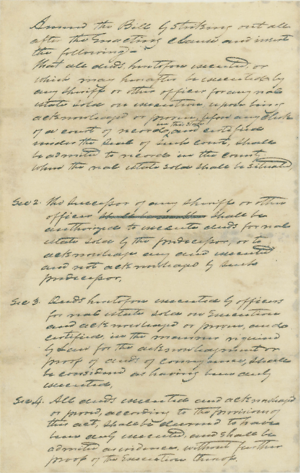 Amend the Bill by Striking out all
after the Enacting clause and insert
the following
That all deeds heretofore executed, or
which may hereafter be executed by
any Sheriff or other officer for any real
estate sold on execution upon being
acknowledged or proven, before any Clerk
of a court of record, in the State and certified
under the Seal of such court, Shall
be admitted to record in the county
where the real estate sold shall be situated.
Sec 2. The successor of any Sheriff or other
officer shall be
authorized to execute deeds for real
estate sold by the predecessor, or to
acknowledge any deed executed
and not acknowledged by such
predecessor.
Sec 3. Deeds heretofore executed by officers
for real estate sold on Execution
and acknowledged or proven, and
certified in the manner required
by law for the acknowledgment or
proof of deeds of conveyance, shall
be considered as having been duly
executed.
Sec 4. All deeds executed and acknowledged
or proved, according to the provisions of
this act, shall be deemed to have
been duly executed, and shall be
admitted as evidence, without further
proof of the Execution thereof.